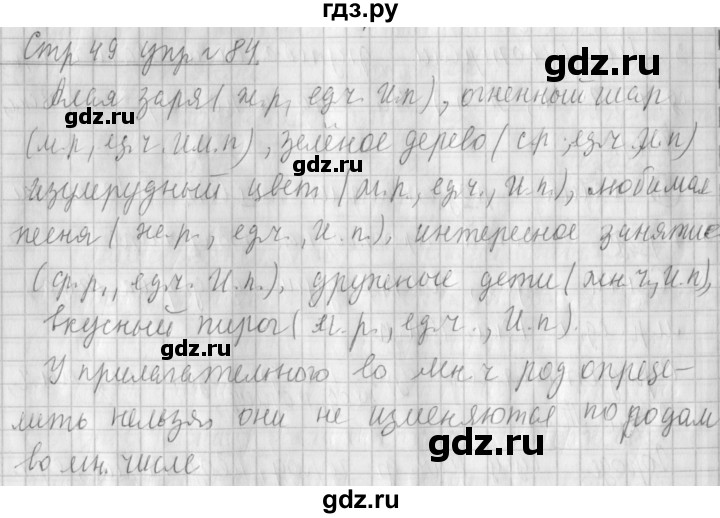 гдз.ру
Стр 49 упр № 84
gdz.ru
Алая заря (ж.р, ед.ч. И.п), огненный шар
gdz.ru
(м.р, ед.ч. Им.п), зелёное дерево (ср., ед.ч, И.п)
изумрудный цвет (м.р., ед.ч., И.п.), любимая
gdz.ru
песня (же.р., ед.ч., И.п.), интересное занятие
(ср.р., ед.ч. И.п.), дружные дети (мн.ч, И.п),
gdz.ru
вкусный пирог (м.р., ед.ч., И.п).
gdz.ru
У прилагательного во мн.ч род опреде-
лить нельзя, они не изменяются по родам
gdz.ru
во мн. числе
gdz.ru
gdz.ru